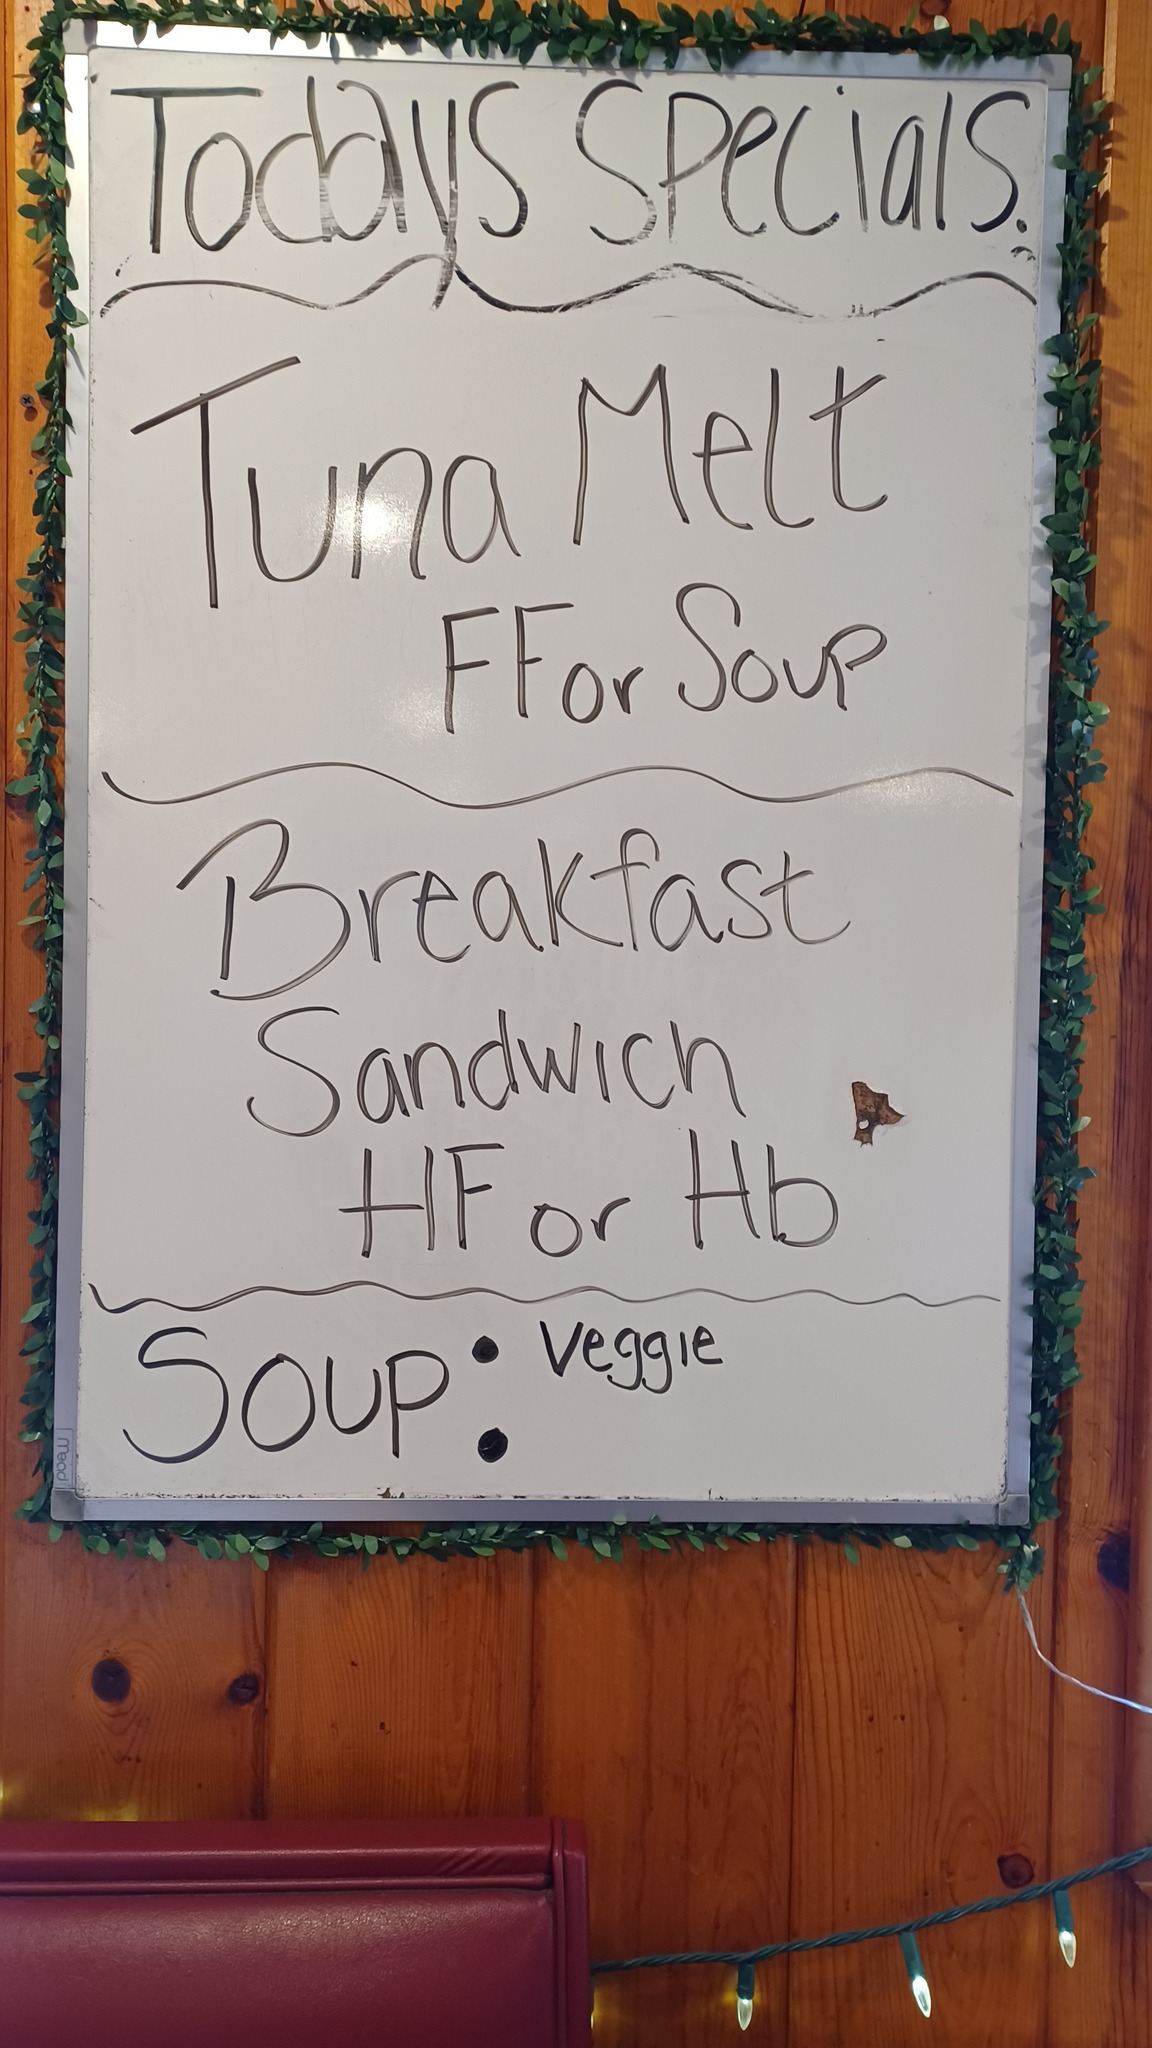 Todays Specials.
Tuna Melt
FF or Soup
Breakfast
Sandwich
HF or Hb
Soup: Veggie
Mead